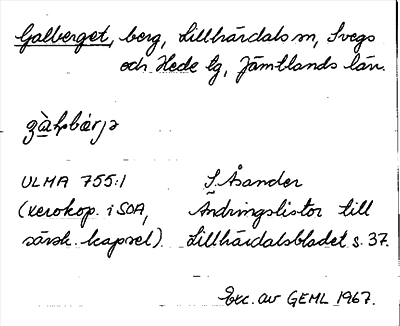 Galberget, berg, Lillhärdals sn, Svegs
och Hede tg, Jämtlands län.
gàḷbǽrjə
ULMA 755:1 S. Åsander
(xerokop. i SOA, Ändringslistor till
särsk. kapsel). Lillhärdalsbladet s. 37.
Exc. av GEML 1967.